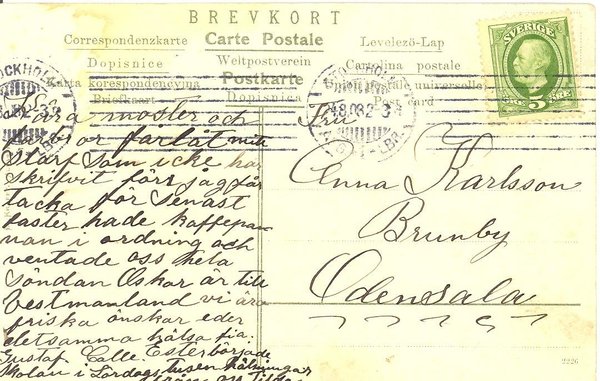 BREVKORT
Correspondenzkarte Carte Postale Levelező-Lap
Dopisnice Weltpostverein Cartolina postale
Karta korespondencyjna Postkarte universelle
Briefkaart Dopisnica Post card
SVERIGE
5 5
STOCKHOLM
Kära moster och
förlåt mitt
slarf som icke har
skrifvit förr jag får
tacka för senast
faster hade kaffepan
nan i ordning och
ventade oss hela
söndan Oskar är till
Vestmanland vi äro
friska önskar eder
detsamma hälsa fia
Gustaf Calle Ester började
skolan i Lördags tusen hälsningar
Anna Karlsson
Brunby
Odensala
2226